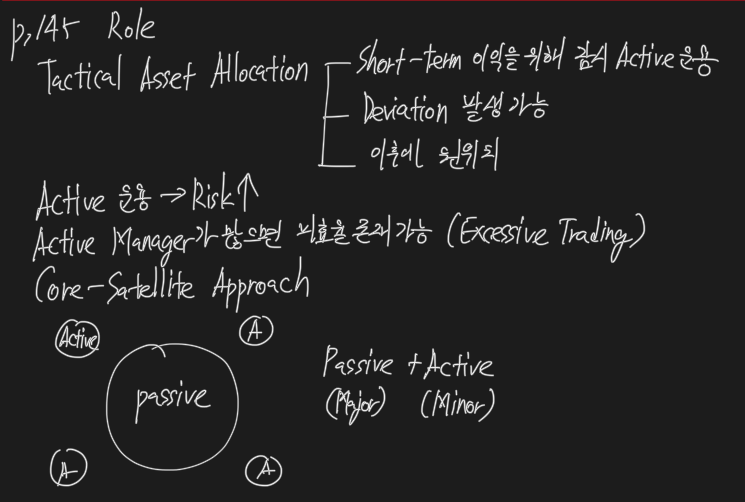 p.145 Role
Tactical Asset Allocation
Short-term 이익을 위해 잠시 Active 운용
Deviation 발생가능
이후에 원위치
Active 운용 → Risk↑
Active Manager가 많으면 비효율 존재가능 (Excessive Trading)
Core-Satellite Approach
Active
A
passive
Passive + Active
(Major) (Minor)
A
A